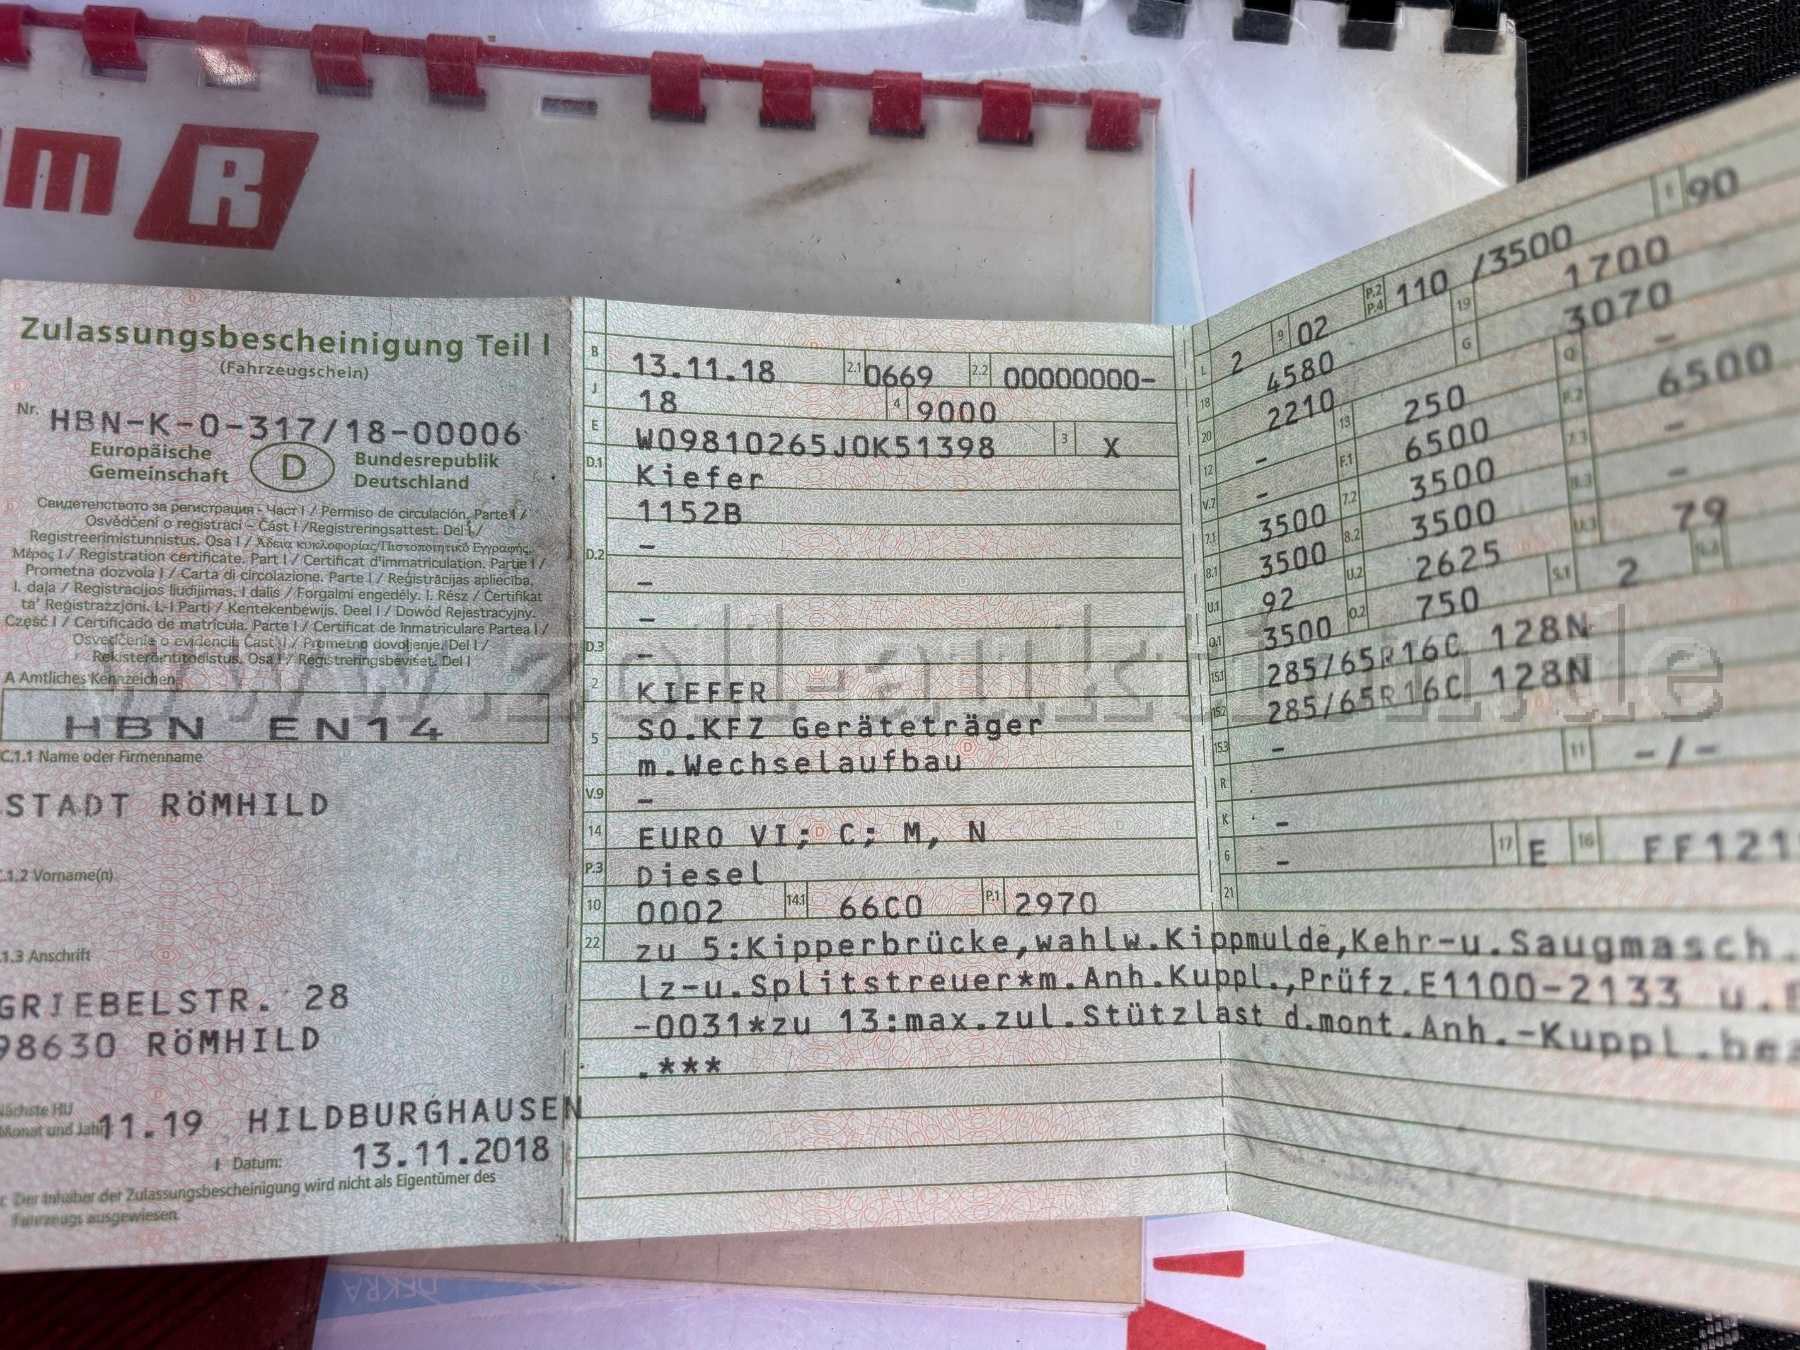 m R
Zulassungsbescheinigung Teil I
(Fahrzeugschein)
Nr. HBN-K-0-317/18-00006
Europäische Gemeinschaft D Bundesrepublik Deutschland
Свидетелство за регистрация - Част I / Permiso de circulación. Parte I /
Osvědčení o registraci - Část I / Registreringsattest. Del I /
Registreerimistunnistus. Osa I / Άδεια κυκλοφορίας/Πιστοποιητικό Εγγραφής.
Μέρος I / Registration certificate. Part I / Certificat d'immatriculation. Partie I /
Prometna dozvola I / Carta di circolazione. Parte I / Reģistrācijas apliecība.
I. daļa / Registracijos liudijimas. I dalis / Forgalmi engedély. I. Rész / Ċertifikat
ta' Reġistrazzjoni. L-I Parti / Kentekenbewijs. Deel I / Dowód Rejestracyjny.
Część I / Certificado de matrícula. Parte I / Certificat de înmatriculare Partea I /
Osvedčenie o evidencii. Časť I / Prometno dovoljenje. Del I /
Rekisteröintitodistus. Osa I / Registreringsbeviset. Del I
A Amtliches Kennzeichen
HBN EN14
C.1.1 Name oder Firmenname
STADT RÖMHILD
C.1.2 Vorname(n)
1.3 Anschrift
GRIEBELSTR. 28
98630 RÖMHILD
Nächste HU
Monat und Jahr 11.19 HILDBURGHAUSEN
Datum: 13.11.2018
Der Inhaber der Zulassungsbescheinigung wird nicht als Eigentümer des
Fahrzeugs ausgewiesen.
B 13.11.18 2.1 0669 2.2 00000000-
J 18 4 9000
E W09810265J0K51398 3 X
D.1 Kiefer
1152B
D.2 -
-
-
D.3 -
2 KIEFER
5 SO.KFZ Geräteträger
m.Wechselaufbau
V.9 -
14 EURO VI; C; M, N
P.3 Diesel
10 0002 14.1 66C0 P.1 2970
22 zu 5:Kipperbrücke,wahlw.Kippmulde,Kehr-u.Saugmasch.
lz-u.Splitstreuer*m.Anh.Kuppl.,Prüfz.E1100-2133 u.
-0031*zu 13:max.zul.Stützlast d.mont.Anh.-Kuppl.
.***
L 2 9 02 P.2 P.4 110 /3500 T 90
18 4580 19 1700
20 2210 G 3070
12 - 13 250 Q -
V.7 - F.1 6500 F.2 6500
7.1 3500 7.2 3500 7.3 -
8.1 3500 8.2 3500 8.3 -
U.1 92 U.2 2625 U.3 79
O.1 3500 O.2 750 S.1 2 S.2
15.1 285/65R16C 128N
15.2 285/65R16C 128N
15.3 -
R 11 -/-
K -
6 - 17 E 16 FF121
21
www.zoll-auktion.de
DEKRA